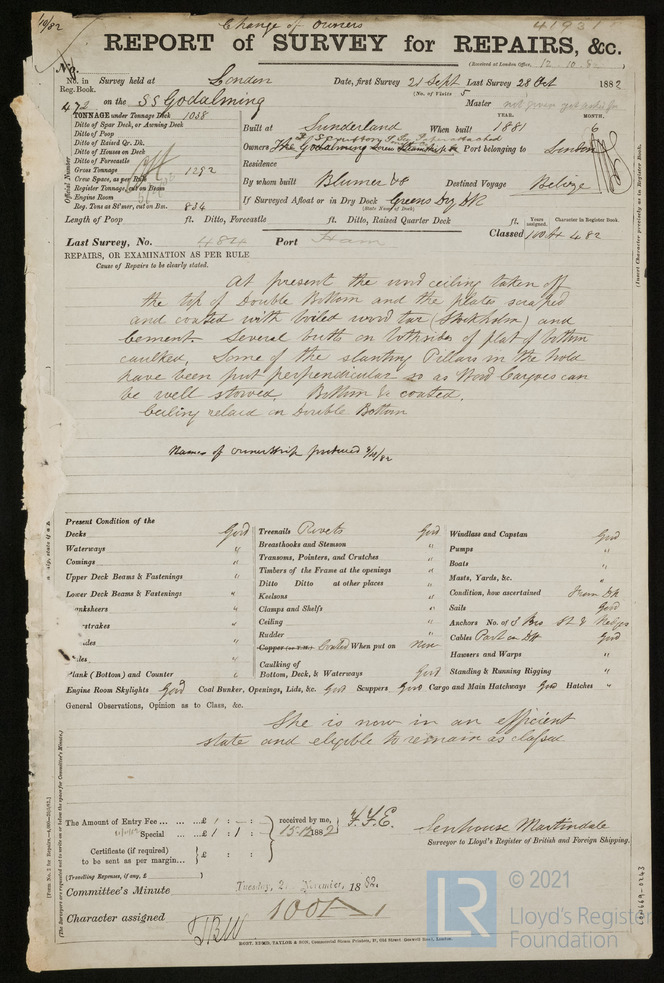 10/82
Change of Owners
41931
REPORT of SURVEY for REPAIRS, &c.
(Received at London Office, 12.10.82)
No. in Reg. Book. Survey held at London Date, first Survey 21 Sept Last Survey 28 Oct 1882
(No. of Visits 5
472 on the SS Godalming Master not given yet
TONNAGE under Tonnage Deck 1058
Ditto of Spar Deck, or Awning Deck
Ditto of Poop
Ditto of Raised Qr. Dk.
Ditto of House on Deck
Ditto of Forecastle
Gross Tonnage 1292
Crew Space, as per Rule
Register Tonnage, cut on Beam
Engine Room
Reg. Tons as St'mer, cut on Bm. 834
Official Number
Built at Sunderland When built YEAR. 1881 MONTH. 6
Owners The Godalming Steamship Co Port belonging to London
Residence
By whom built Blumer & Co Destined Voyage Belize
If Surveyed Afloat or in Dry Dock Greens Dry Dk
(State Name of Dock.)
Length of Poop ft. Ditto, Forecastle ft. Ditto, Raised Quarter Deck ft.
Years assigned. Character in Register Book.
Classed 100 A1 4.82
(Insert Character precisely as in Register Book.
Last Survey, No. 484 Port Ham
REPAIRS, OR EXAMINATION AS PER RULE
Cause of Repairs to be clearly stated.
At present the wood ceiling taken off
the top of Double Bottom and the plates scraped
and coated with boiled wood tar (Stockholm) and
cement. Several butts on both sides of flat of bottom
caulked. Some of the slanting Pillars in the hold
have been put perpendicular so as Wood Cargoes can
be well stowed. Bottom &c coated.
Ceiling relaid on Double Bottom
Names of ownership produced
Present Condition of the
Decks Good
Waterways "
Comings "
Upper Deck Beams & Fastenings "
Lower Deck Beams & Fastenings "
anksheers "
rstrakes "
Plank (Bottom) and Counter "
Treenails Rivets Good
Breasthooks and Stemson "
Transoms, Pointers, and Crutches "
Timbers of the Frame at the openings "
Ditto Ditto at other places "
Keelsons "
Clamps and Shelfs "
Ceiling "
Rudder "
Copper (or Y.M.) Coated When put on Now
Caulking of
Bottom, Deck, & Waterways Good
Windlass and Capstan Good
Pumps "
Boats "
Masts, Yards, &c. "
Condition, how ascertained From Dk
Sails Good
Anchors No. of 3 Bro St & Kedges
Cables Part on Dk Good
Hawsers and Warps "
Standing & Running Rigging "
Engine Room Skylights Good Coal Bunker, Openings, Lids, &c. Good Scuppers Good Cargo and Main Hatchways Good Hatches "
General Observations, Opinion as to Class, &c.
She is now in an efficient
state and eligible to remain as classed
The Amount of Entry Fee ... ... ...£ 1 : - : -
Special ... ...£ 1 : 1 : -
received by me,
15.12.1882
Certificate (if required)
to be sent as per margin... £ : :
(Travelling Expenses, if any, £ )
Senhouse Martindale
Surveyor to Lloyd's Register of British and Foreign Shipping.
Committee's Minute Tuesday, 2 November, 1882.
Character assigned 100A1
ROBT. EDMD. TAYLOR & SON, Commercial Steam Printers, 19, Old Street, Goswell Road, London.
[Form No. 1 for Repairs.
(The Surveyors are requested not to write on or below the space for Committee's Minute.)
LR
© 2021
Lloyd's Register
Foundation